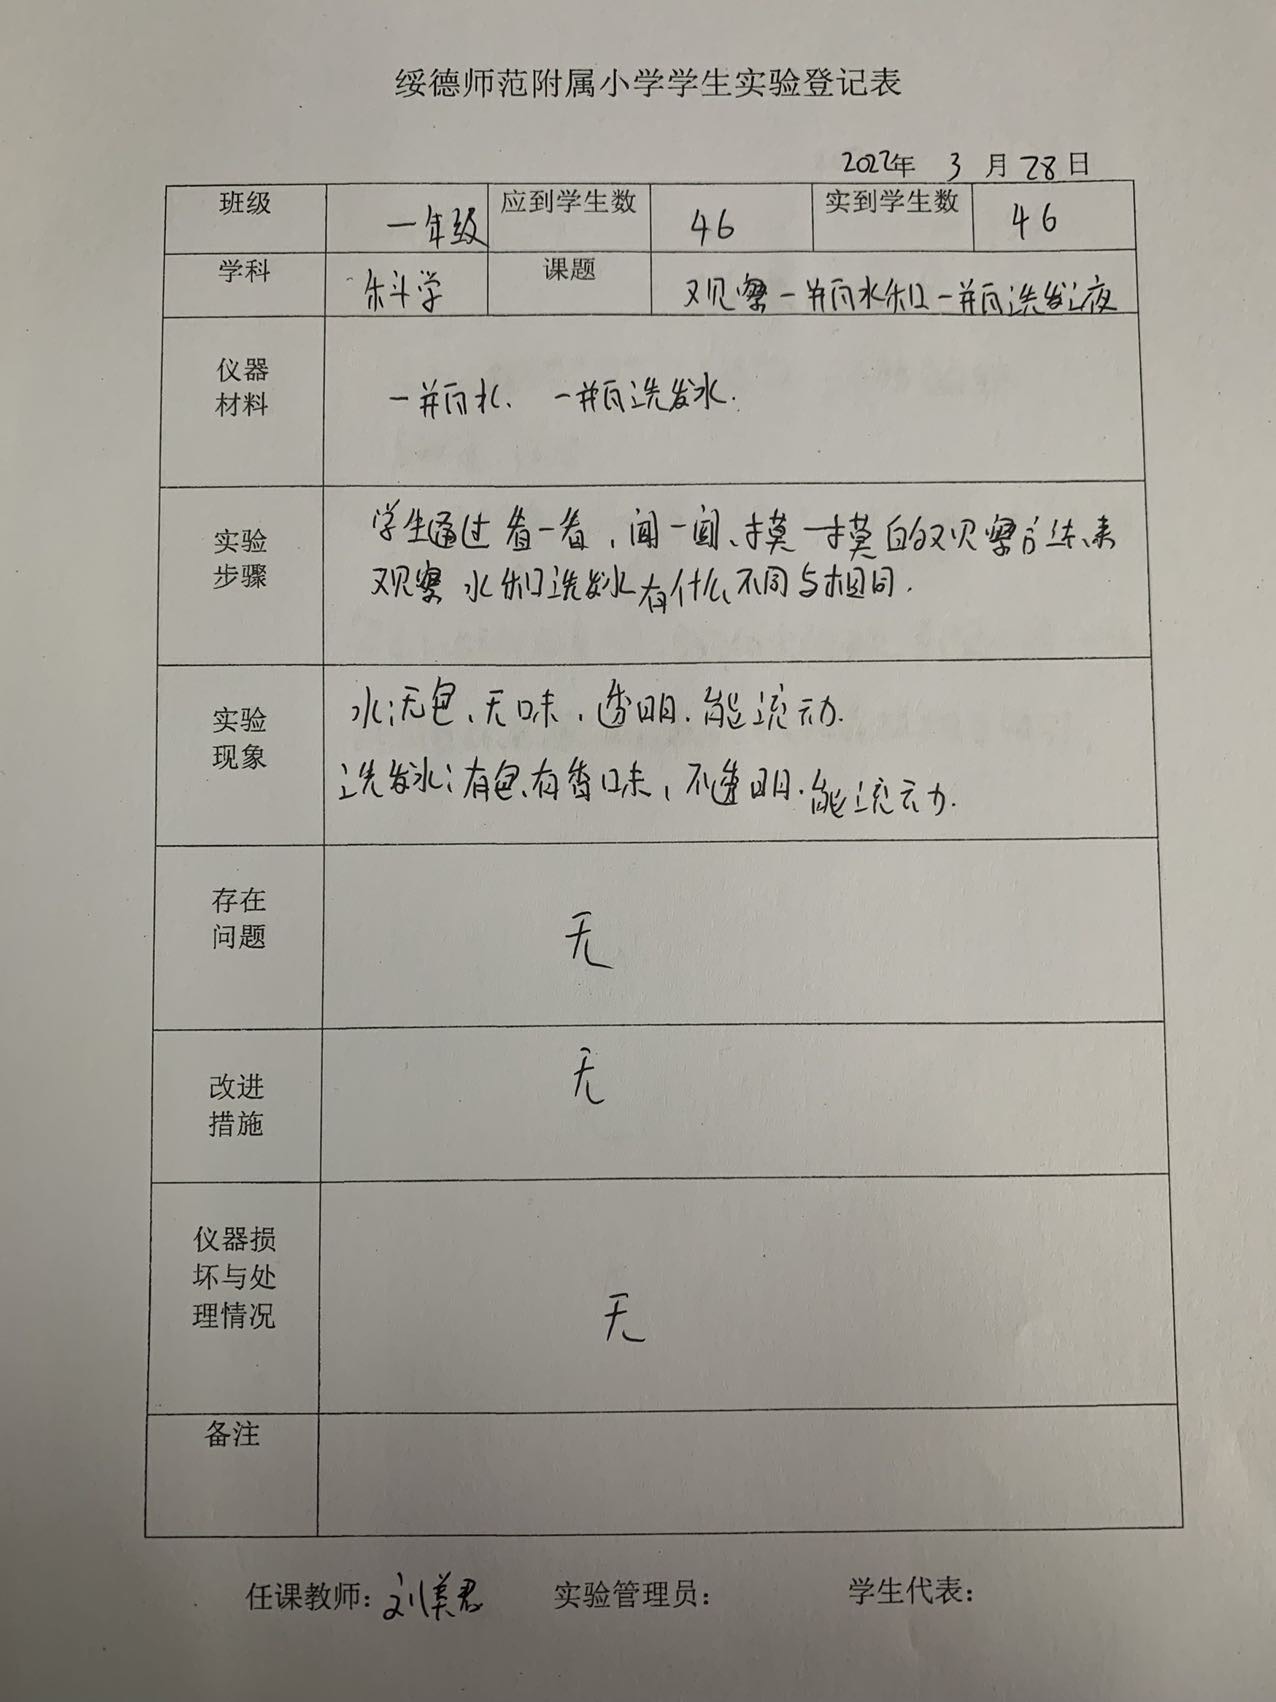 绥德师范附属小学学生实验登记表
2022年 3 月 28 日
班级 一年级 应到学生数 46 实到学生数 46
学科 科学 课题 观察一瓶水和一瓶洗发液
仪器
材料
一瓶水、一瓶洗发水.
实验
步骤
学生通过看一看、闻一闻、摸一摸的观察方法来
观察水和洗发水有什么不同与相同.
实验
现象
水:无色、无味、透明.能流动.
洗发水:有色、有香味、不透明.能流动.
存在
问题
无
改进
措施
无
仪器损
坏与处
理情况
无
备注
任课教师:刘美君 实验管理员: 学生代表: